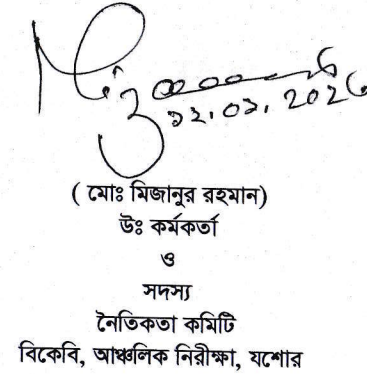 ১২.০১.২০২৬
( মোঃ মিজানুর রহমান)
উঃ কর্মকর্তা
ও
সদস্য
নৈতিকতা কমিটি
বিকেবি, আঞ্চলিক নিরীক্ষা, যশোর